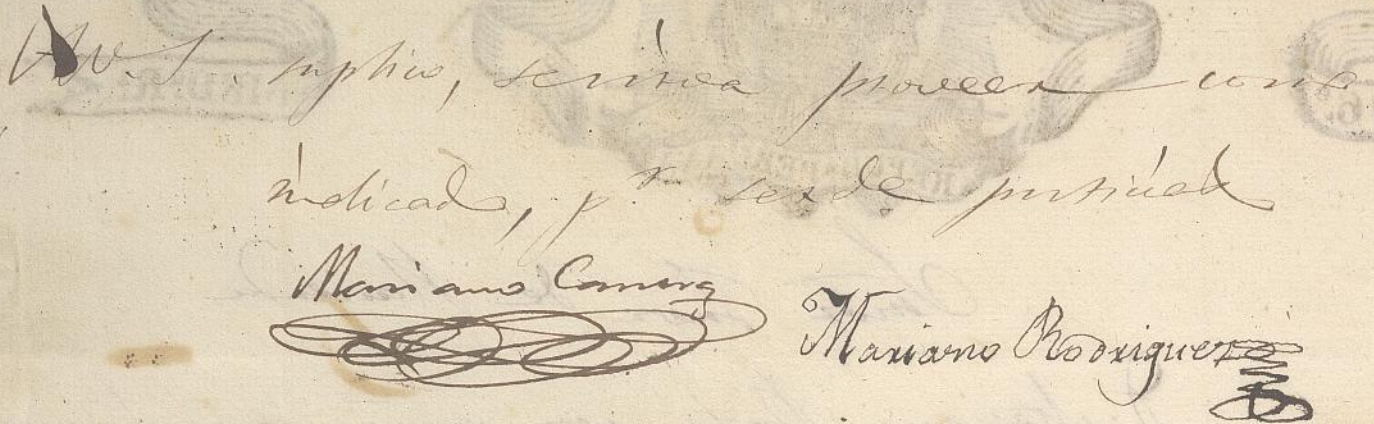 A V. S. suplico, se sirva proveer como
indicado, pr. ser de justicia
Mariano
Mariano Rodriguez